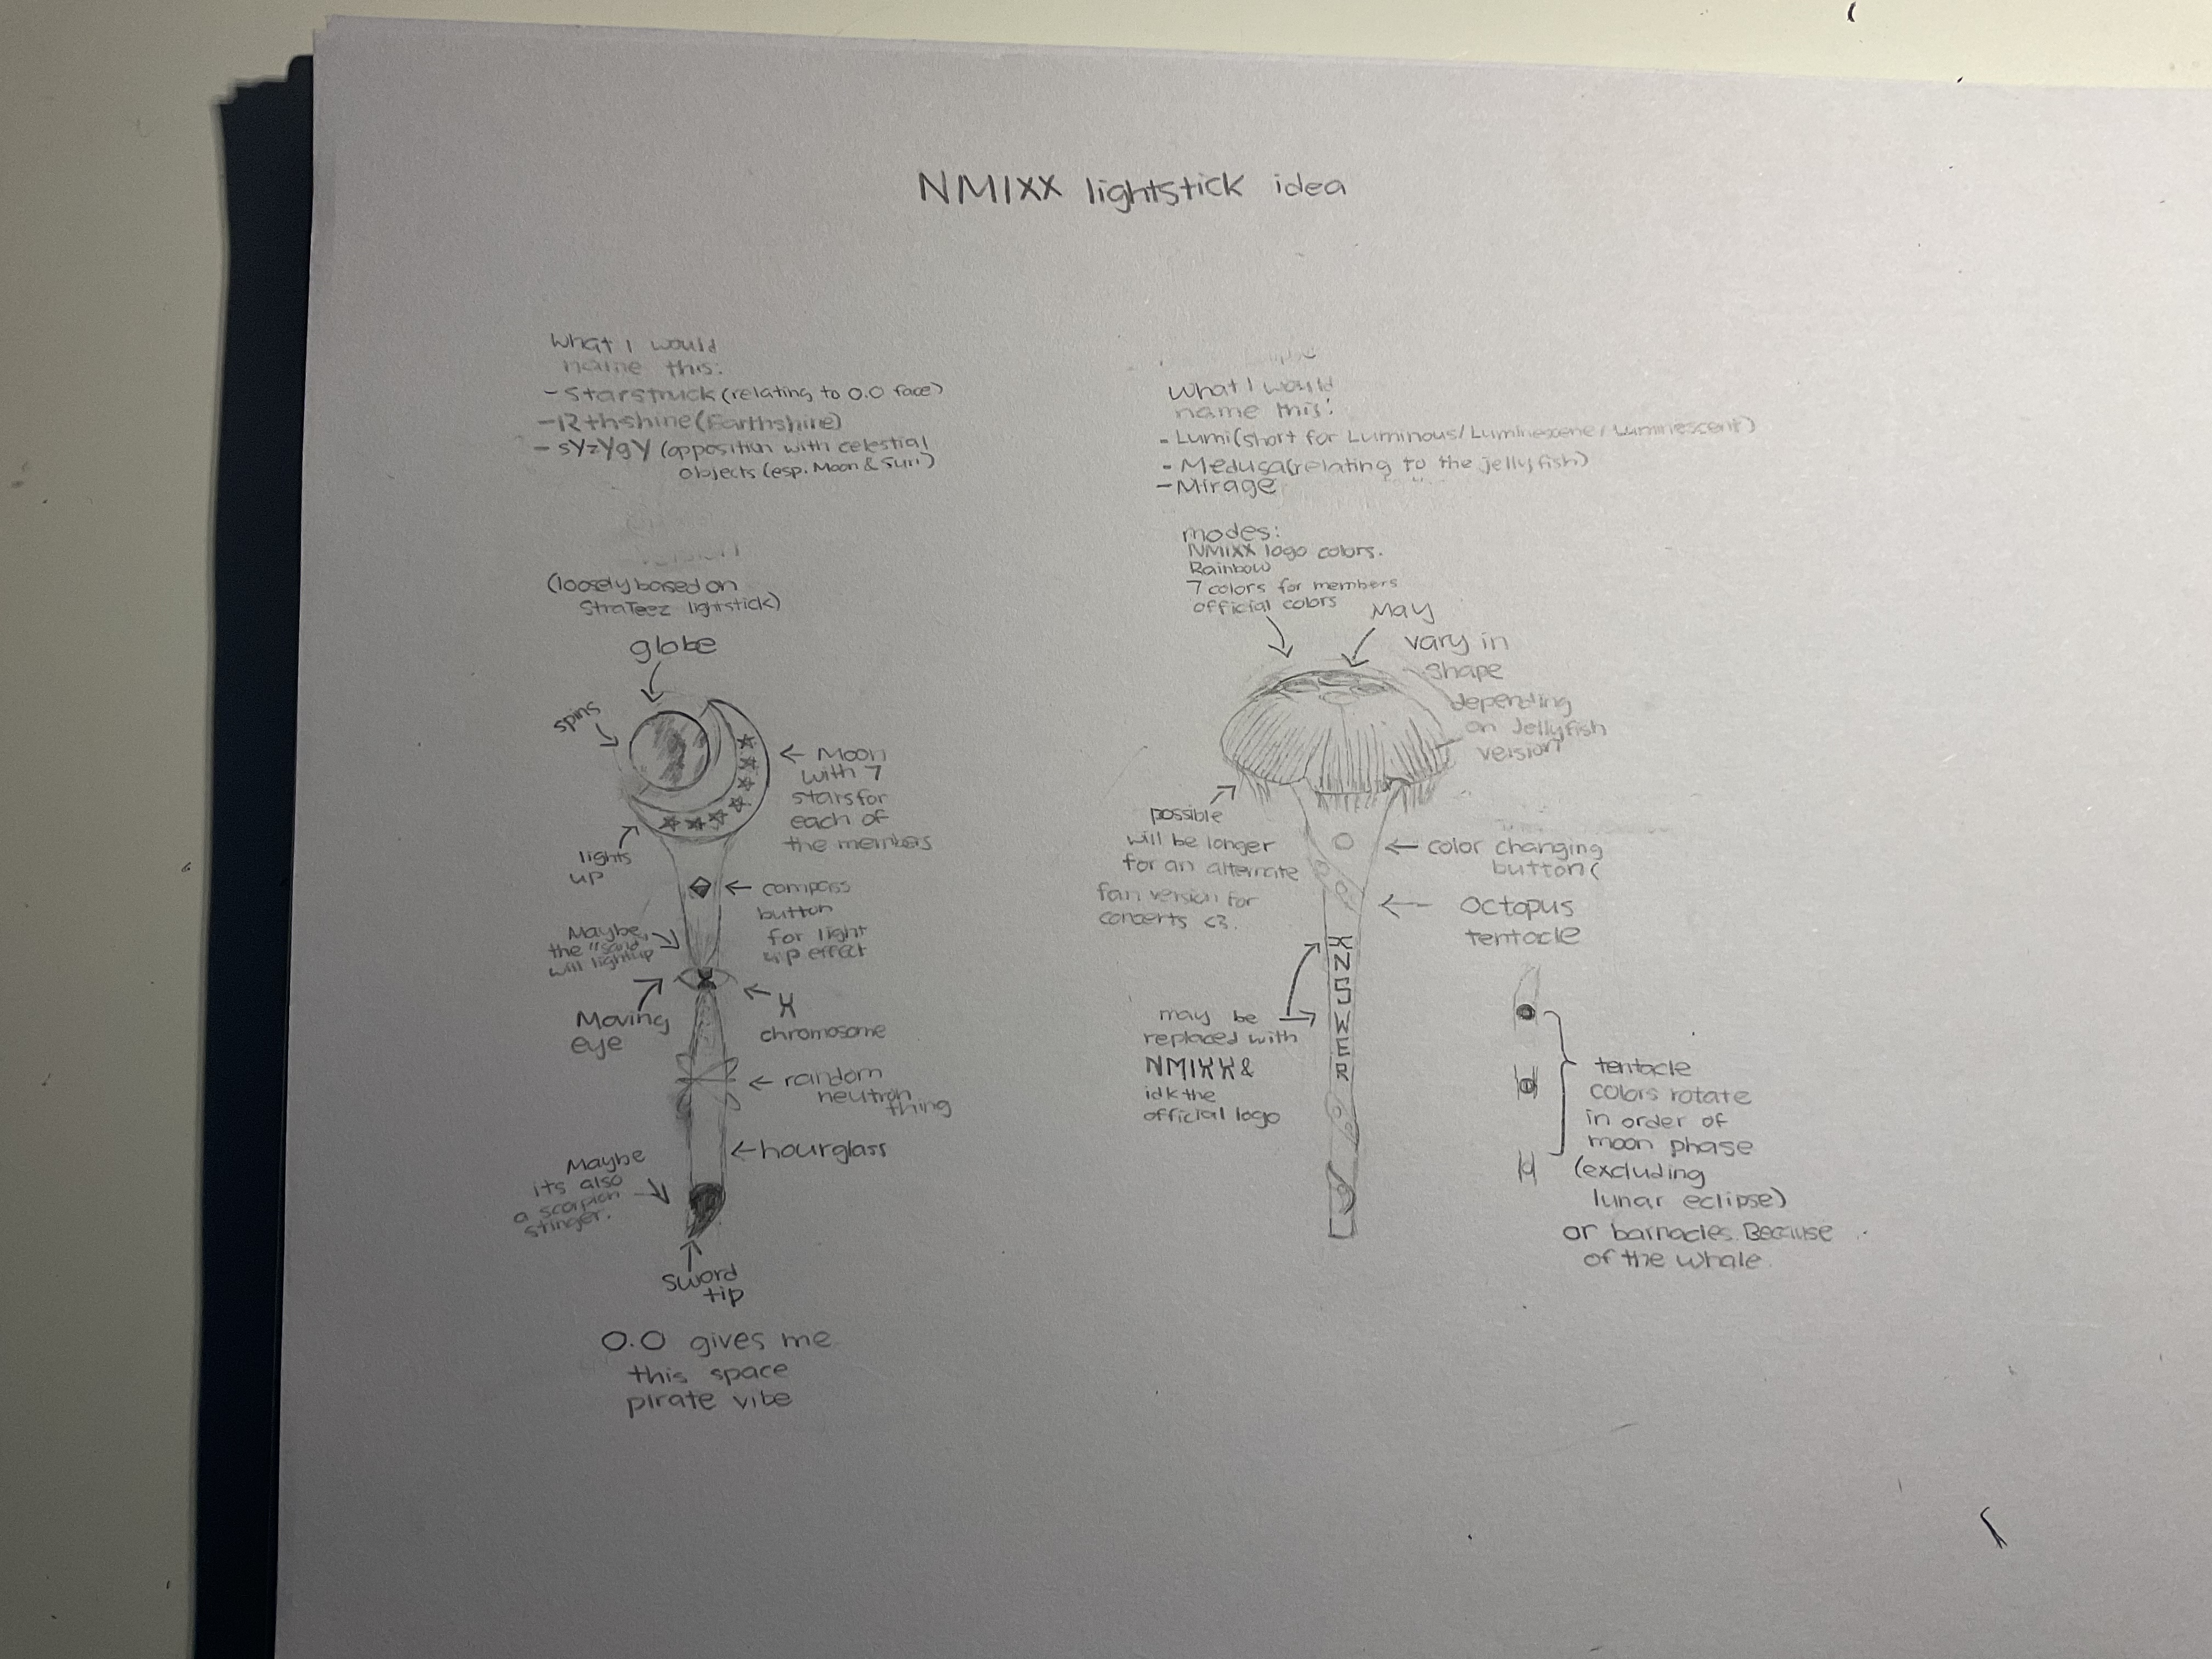 NMIXX lightstick idea
What I would
name this:
- Starstruck (relating to O.O face)
- R+hshine (Earthshine)
- sYzYgY (opposition with celestial
objects (esp. Moon & Sun)
version
(loosely based on
StraTeez lightstick)
globe
spins
← Moon
with 7
stars for
each of
the members
lights
up
← compass
button
for light
up effect
Maybe
the "sand
will lightup
Moving
eye
← X
chromosome
← random
neutron
thing
← hourglass
Maybe
its also
a scorpion
stinger.
sword
tip
O.O gives me
this space
pirate vibe
What I would
name this:
- Lumi (short for Luminous/Luminescene/Luminescent)
- Medusa (relating to the jellyfish)
- Mirage
modes:
NMIXX logo colors.
Rainbow
7 colors for members
official colors
May
vary in
shape
depending
on Jellyfish
version
possible
will be longer
for an alternate
fan version for
concerts <3.
← color changing
button (
← Octopus
tentacle
XNSWER
may be
replaced with
NMIXX &
idk the
official logo
tentacle
colors rotate
in order of
moon phase
(excluding
lunar eclipse)
or barnacles. Because
of the whale.